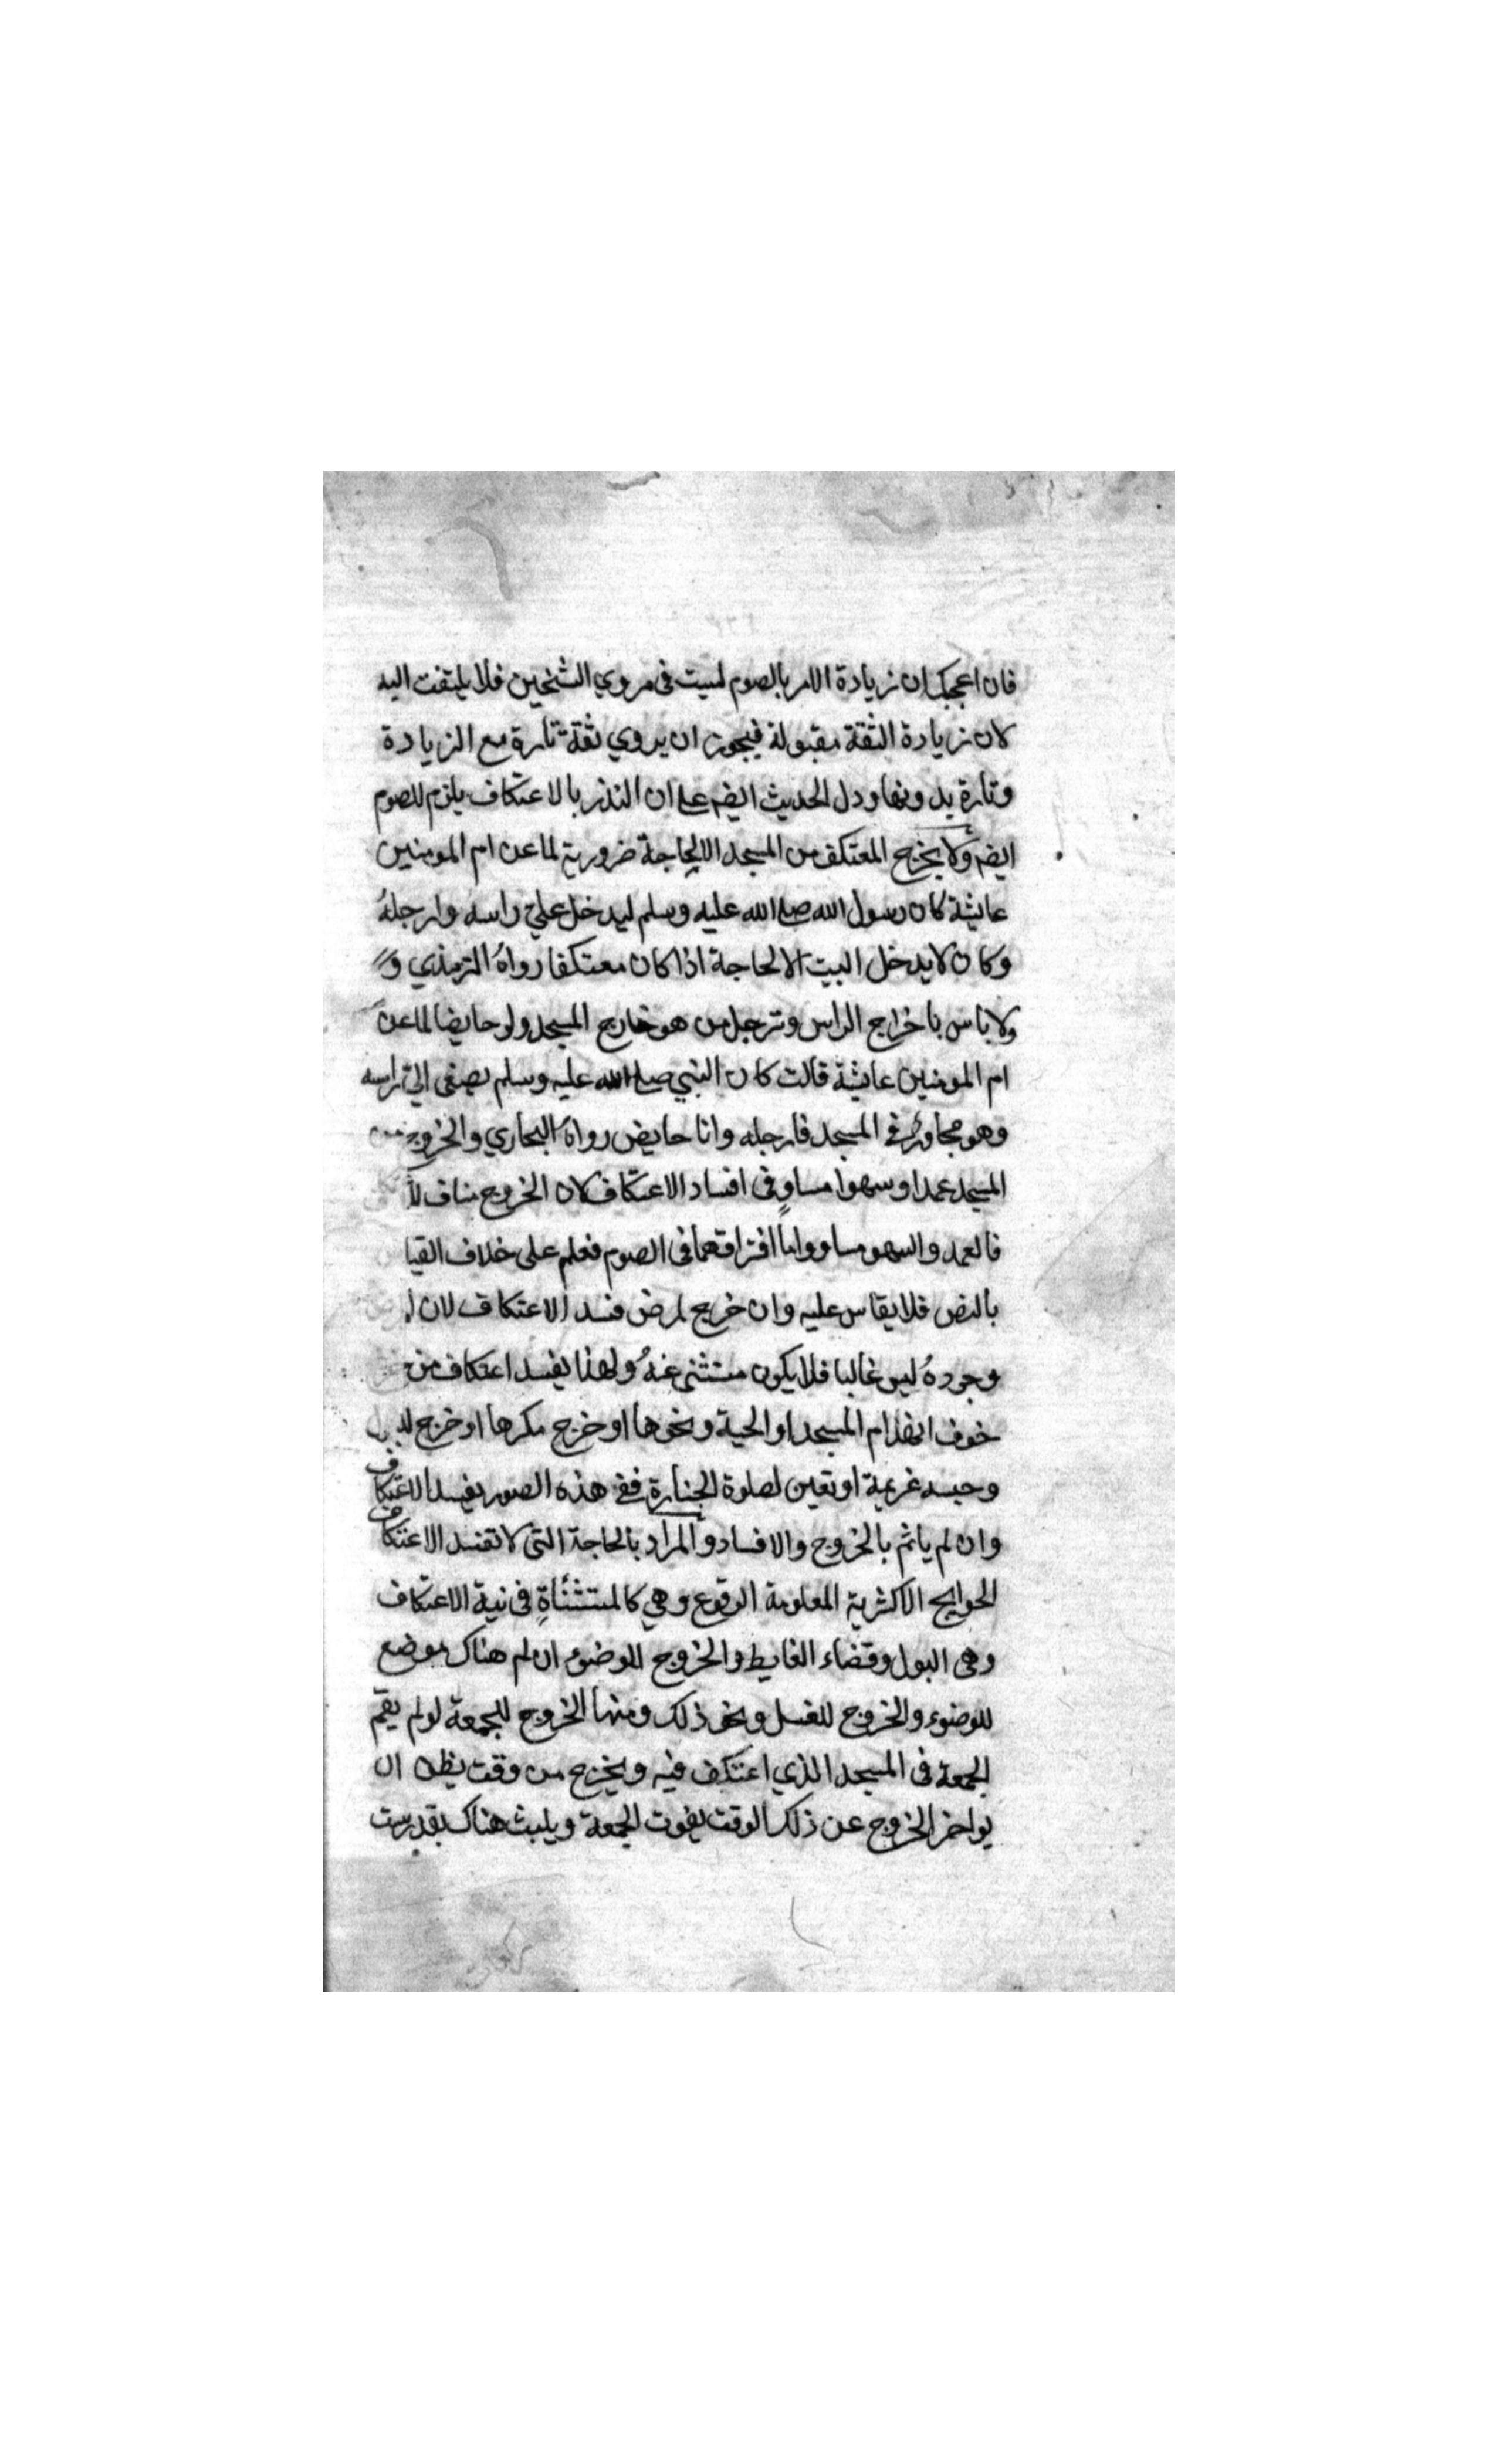 فان اعجبك ان زيادة الامر بالصوم ليست في مروي الشيخين فلا يلتفت اليه
لان زيادة الثقة مقبولة فيجوز ان يروي ثقة تارة مع الزيادة
وتارة بدونها ودل الحديث ايضه على ان النذر بالاعتكاف يلزم للصوم
ايضه ولا يخرج المعتكف من المسجد الا لحاجة ضرورية لما عن ام المومنين
عايشة كان رسول الله صلى الله عليه وسلم ليدخل علي راسه وارجله
وكان لا يدخل البيت الا لحاجة اذا كان معتكفا رواه الترمذي و
ولا باس باخراج الراس وترجيل من هو خارج المسجد ولو حايضا لما عن
ام المومنين عايشة قالت كان النبي صلى الله عليه وسلم يصغى الي راسه
وهو مجاور في المسجد فارجله وانا حايض رواه البخاري والخروج من
المسجد عمدا وسهوا مساوٍ في افساد الاعتكاف لان الخروج مناف
فالعمد والسهو مساو واما افتراقهما في الصوم فعلم على خلاف القيا
بالنص فلا يقاس عليه وان خرج لمرض فسد الاعتكاف لان
وجوده ليس غالبا فلا يكون مستثنى عنه ولهذا يفسد اعتكاف من
خوف انهدام المسجد او الحية ونحوها او خرج مكرها او خرج
وحبسه غريمه او تعين لصلوة الجنازة ففي هذه الصور يفسد الاعتكاف
وان لم ياثم بالخروج والافساد والمراد بالحاجة التي لا تفسد الاعتكاف
الحوايج الاكثرية المعلومة الوقوع وهي كالمستثناةِ في نية الاعتكاف
وهي البول وقضاء الغايط والخروج للوضوء ان لم هناك موضع
للوضوء والخروج للغسل ونحو ذلك ومنها الخروج للجمعة لو لم يقم
الجمعة في المسجد الذي اعتكف فيه ويخرج من وقت يظن ان
يواخر الخروج عن ذلك الوقت يفوت الجمعة ويلبث هناك بقدر ست